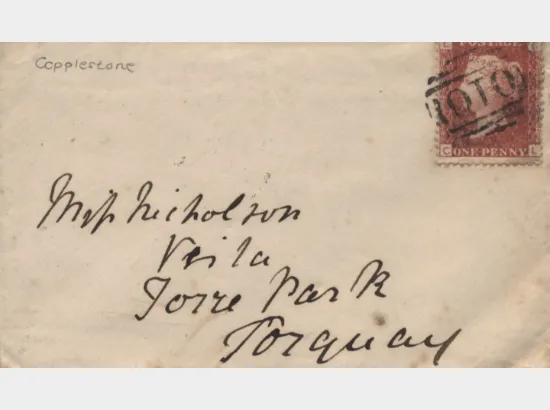 Copplestone
POSTAGE
C ONE PENNY L
Miss Nicholson
Torre Park
Torquay